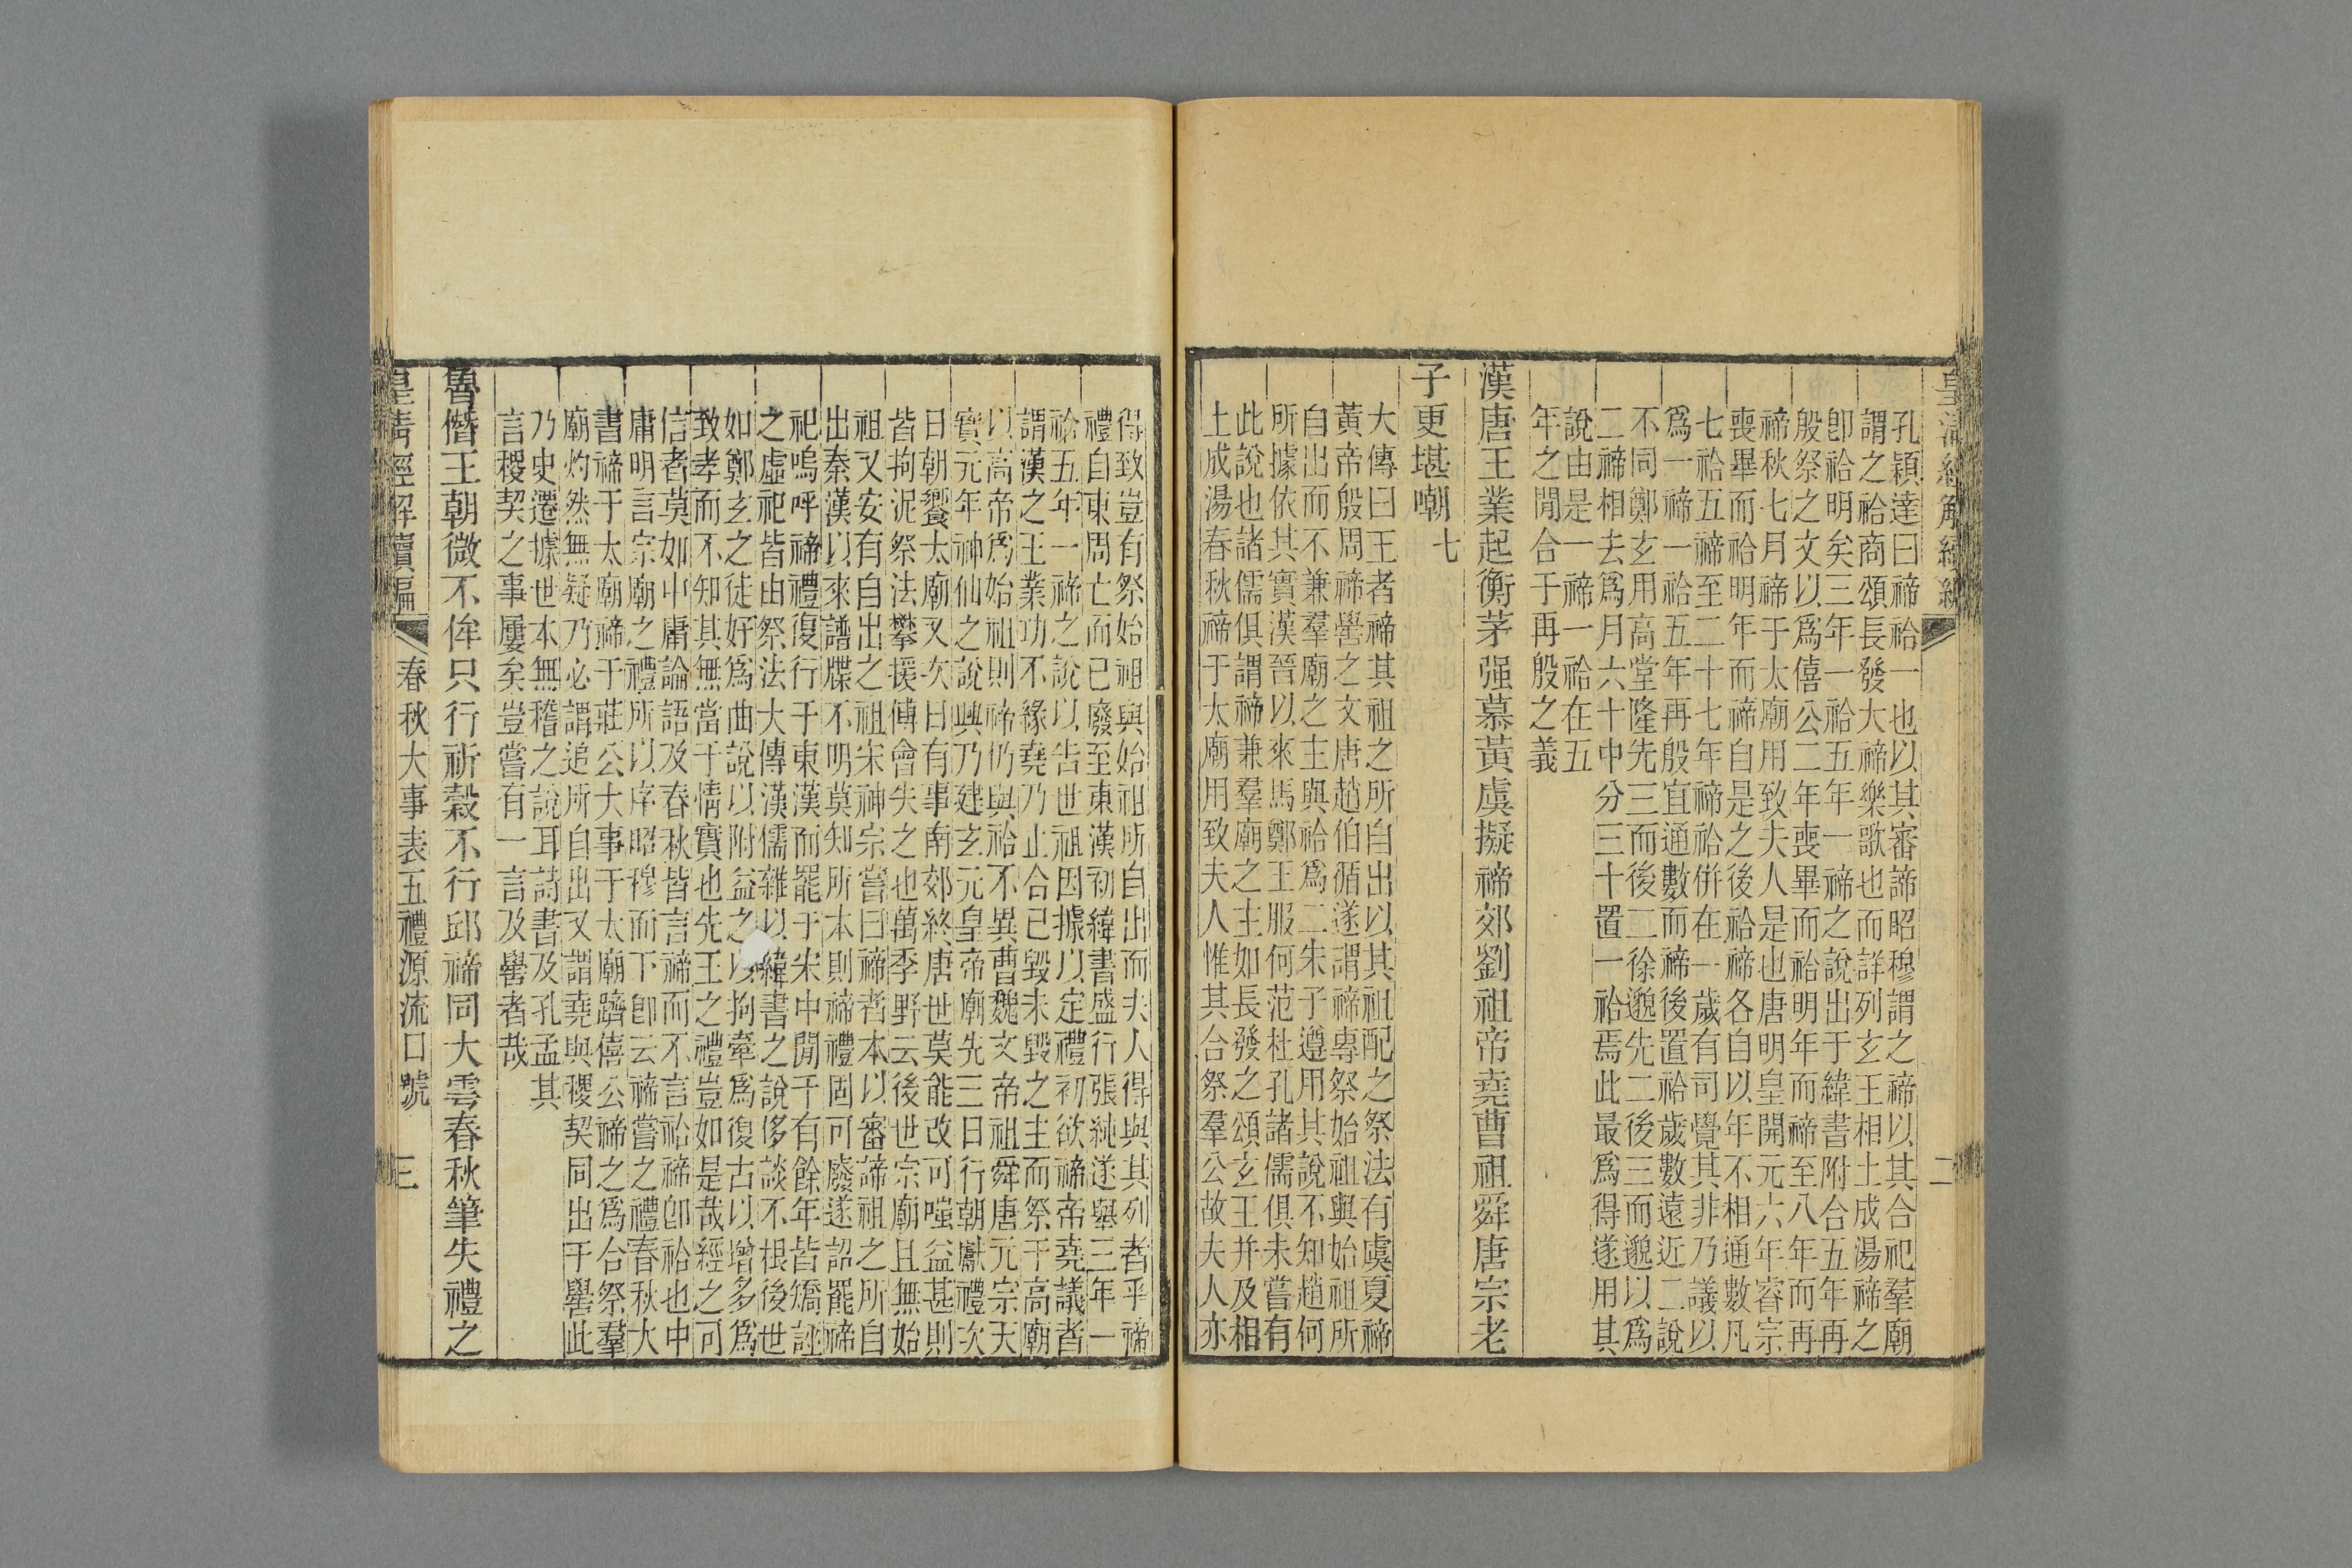 皇清經解續編
二
孔穎達曰禘祫一也以其審諦昭穆謂之禘以其合祀羣廟
謂之祫商頌長發大禘樂歌也而詳列玄王相土成湯禘之
卽祫明矣三年一祫五年一禘之說出于緯書附合五年再
殷祭之文以爲僖公二年喪畢而祫明年而禘至八年而再
禘秋七月禘于太廟用致夫人是也唐明皇開元六年睿宗
喪畢而祫明年而禘自是之後祫禘各自以年不相通數凡
七祫五禘至二十七年禘祫併在一歲有司覺其非乃議以
爲一禘一祫五年再殷宜通數而禘後置祫歲數遠近二說
不同鄭玄用高堂隆先三而後二徐邈先二後三而邈以爲
二禘相去爲月六十中分三十置一祫焉此最爲得遂用其
說由是一禘一祫在五
年之閒合于再殷之義
漢唐王業起衡茅强慕黃虞擬禘郊劉祖帝堯曹祖舜唐宗老
子更堪嘲七
大傳曰王者禘其祖之所自出以其祖配之祭法有虞夏禘
黃帝殷周禘嚳之文唐趙伯循遂謂禘專祭始祖與始祖所
自出而不兼羣廟之主與祫爲二朱子遵用其說不知趙何
所據依其實漢晉以來馬鄭王服何范杜孔諸儒俱未嘗有
此說也諸儒俱謂禘兼羣廟之主如長發之頌玄王并及相
土成湯春秋禘于太廟用致夫人惟其合祭羣公故夫人亦
得致豈有祭始祖與始祖所自出而夫人得與其列者乎禘
禮自東周亡而已廢至東漢初緯書盛行張純遂舉三年一
祫五年一禘之說以告世祖因據以定禮初欲禘帝堯議者
謂漢之王業功不緣堯乃止合已毀未毀之主而祭于高廟
以高帝爲始祖則禘仍與祫不異曹魏文帝祖舜唐元宗天
寶元年神仙之說興乃建玄元皇帝廟先三日行朝獻禮次
日朝饗太廟又次日有事南郊終唐世莫能改可嗤益甚則
皆拘泥祭法攀援傅會失之也萬季野云後世宗廟且無始
祖又安有自出之祖宋神宗嘗曰禘者本以審諦祖之所自
出秦漢以來譜牒不明莫知所本則禘禮固可廢遂詔罷禘
祀嗚呼禘禮復行于東漢而罷于宋中閒千有餘年皆矯誣
之虛祀皆由祭法大傳漢儒雜以緯書之說侈談不根後世
如鄭玄之徒好爲曲說以附益之以拘牽爲復古以增多爲
致孝而不知其無當于情實也先王之禮豈如是哉經之可
信者莫如中庸論語及春秋皆言禘而不言祫禘卽祫也中
庸明言宗廟之禮所以序昭穆而下卽云禘嘗之禮春秋大
書禘于太廟禘于莊公大事于太廟躋僖公禘之爲合祭羣
廟灼然無疑乃必謂追所自出又謂堯與稷契同出于嚳此
乃史遷據世本無稽之說耳詩書及孔孟其
言稷契之事屢矣豈嘗有一言及嚳者哉
魯僭王朝微不侔只行祈穀不行邱禘同大雩春秋筆失禮之
皇清經解續編
春秋大事表五禮源流口號
三